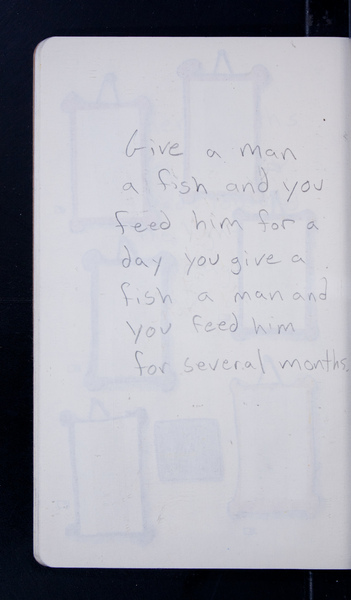 Give a man
a fish and you
feed him for a
day you give a
fish a man and
you feed him
for several months.